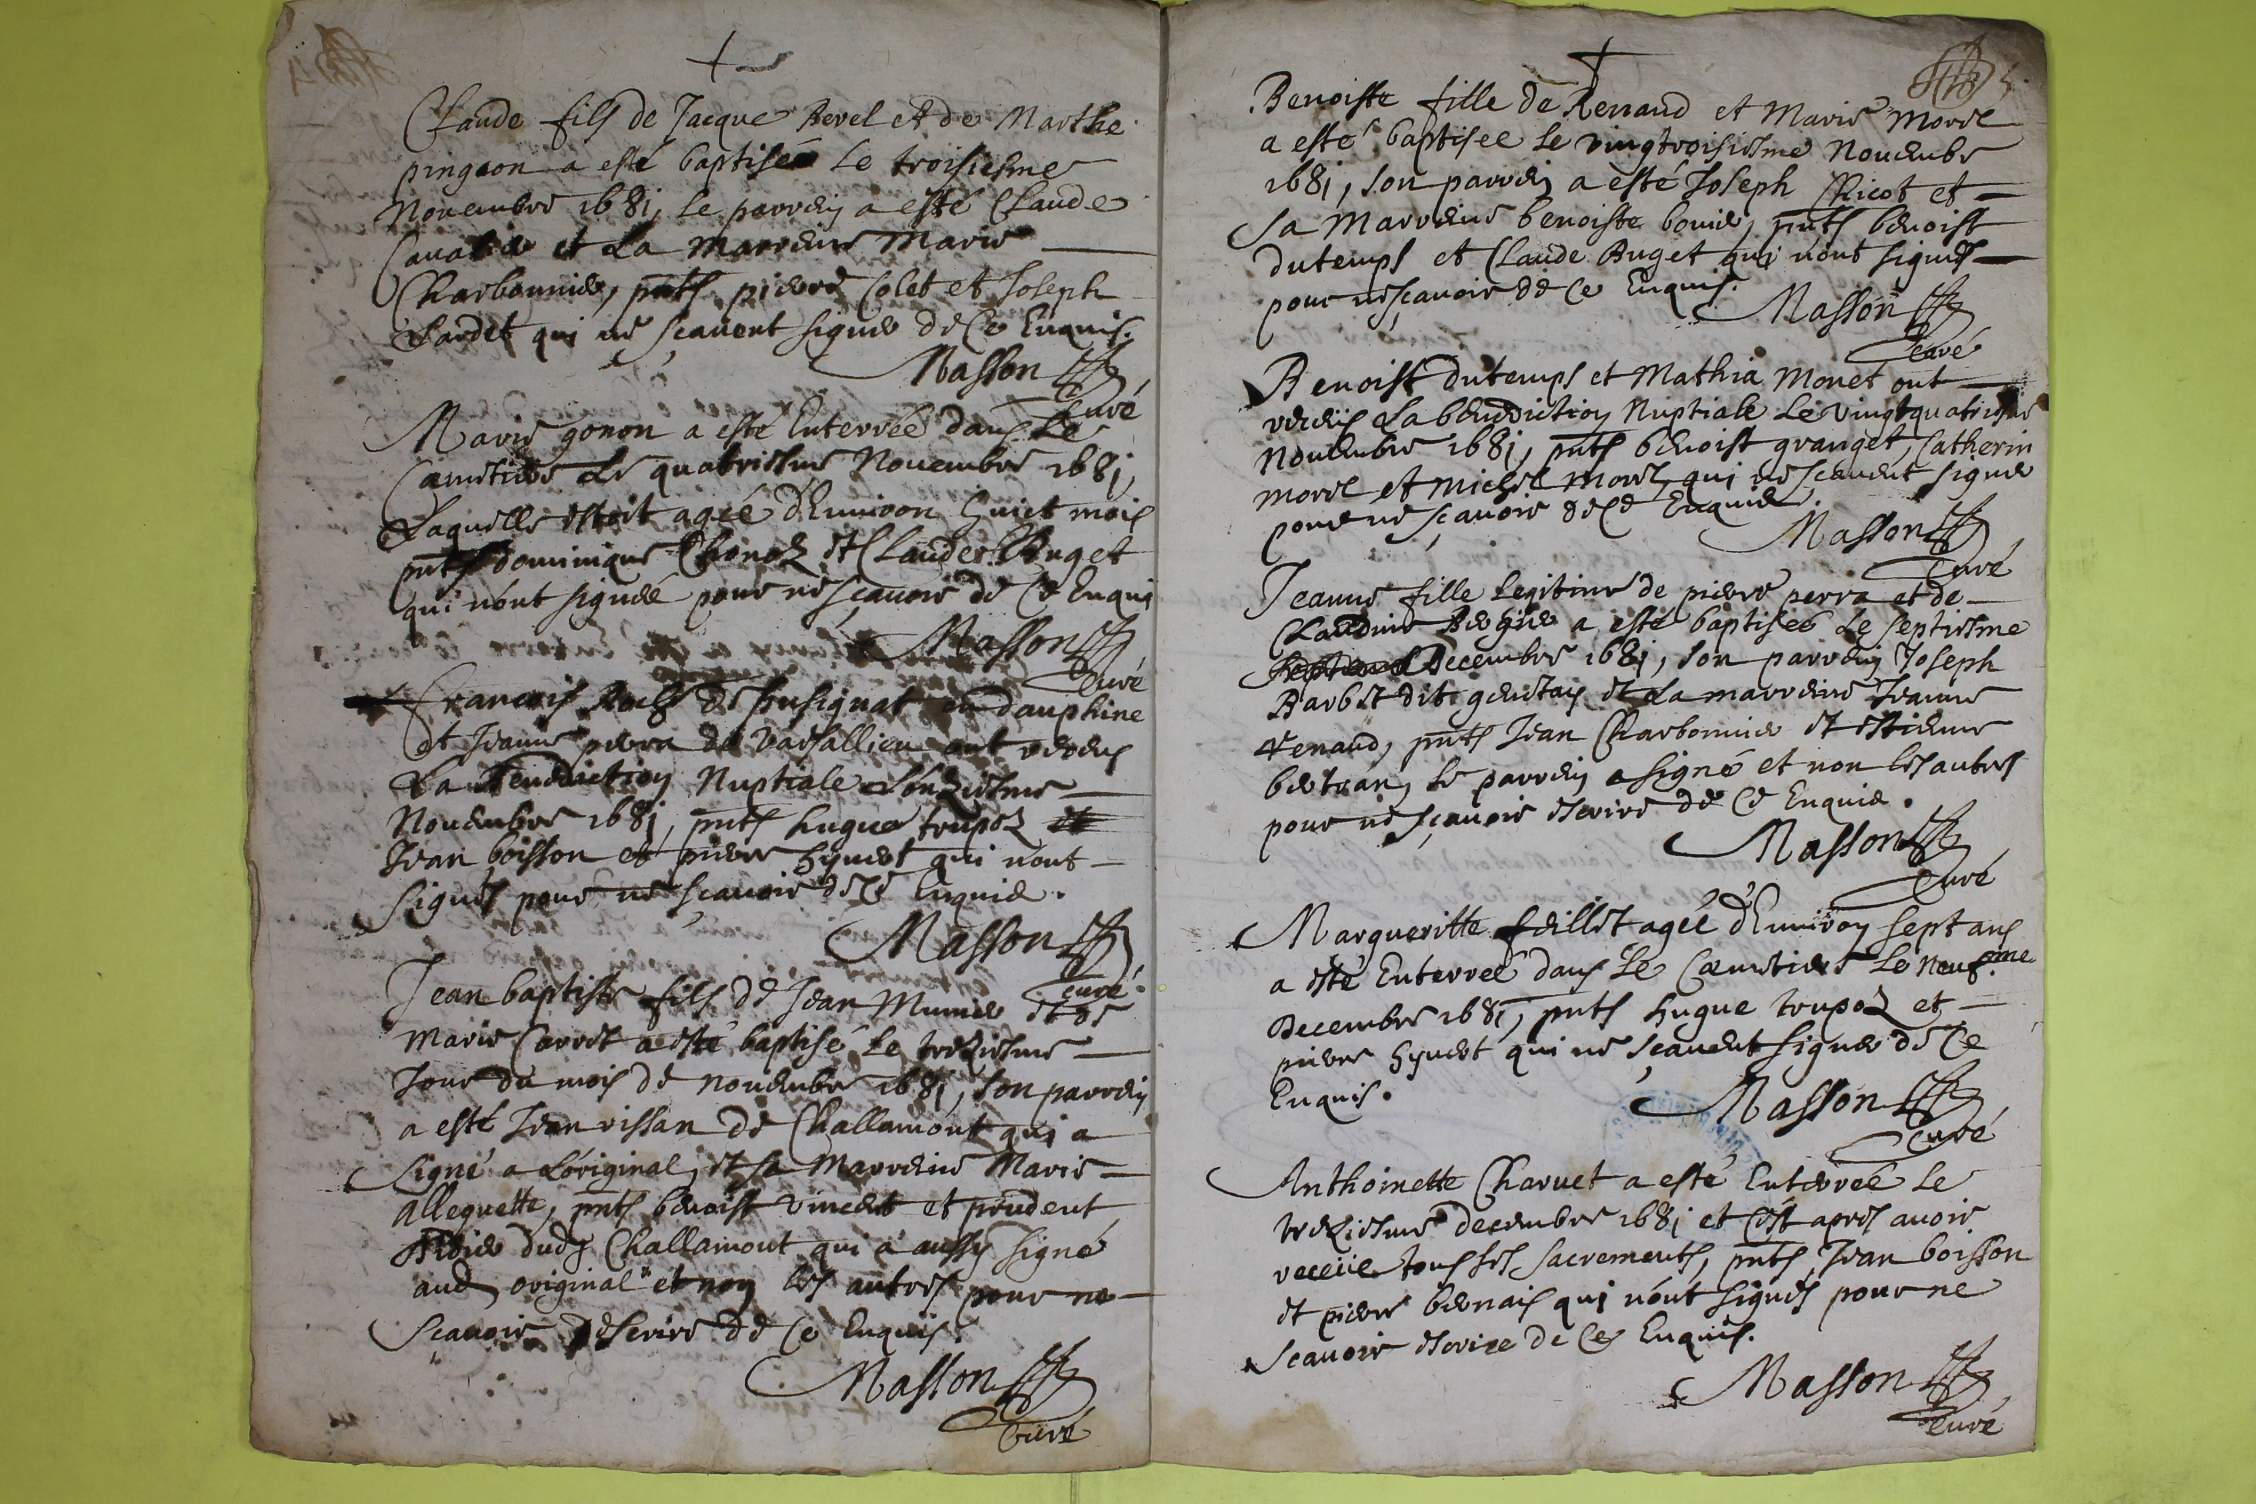 Claude fils de Jacque Revel et de Marthe
pingeon a esté baptisé le troisiesme
Novembre 1681, le parrein a esté Claude
Cavalier et La Marreine Marie
Charbonnier, pnts pierre Colet et Joseph
Lardet qui ne sçavent signer de Ce Enquis.
Masson
Curé
Marie gonon a esté Enterrée dans Le
Cœmetiere Le quatriesme Novembre 1681,
Laquelle estoit agée d'Environ huict mois
pnts dominique et Claude Buget
qui n'ont signéé pour ne sçavoir de Ce Enquis
Masson
Curé
François Roch de en dauphine
et Jeanne perra de Varsallieu ont receus
La Benediction Nuptiale L'onziesme
Novembre 1681, pnts hugue trupoz
Jean boisson et pierre hyvert qui n'ont
signés pour ne sçavoir de Ce Enquis.
Masson
Curé
Jean baptiste fils de Jean Munier et de
Marie Carret a esté baptisé Le treziesme
Jour du mois de novembre 1681, son parrein
a esté Jean rissan de Challamont qui a
signé a L'original, et sa Marreine Marie
Alleguette, pnts benoist vincent et prudent
dud Challamont qui a aussy signé
aud original et non les autres pour ne
sçavoir escrire de Ce Enquis.
Masson
Curé
5.
Benoiste fille de Renaud et Marie Morel
a esté baptisee Le vingtroisiesme Novembre
1681, son parrein a esté Joseph Chicot et
sa Marreine benoiste bouvier, pnts benoist
dutemps et Claude Buget qui n'ont signés
pour ne sçavoir de Ce Enquis.
Masson
Curé
Benoist dutemps et Mathia Monet ont
receus La benediction Nuptiale Le vingtquatriesme
Novembre 1681, pnts benoist granget, Catherin
morel et Michel Morel, qui ne sçavent signer
pour ne sçavoir de Ce Enquis.
Masson
Curé
Jeanne fille Legitime de pierre perra et de
Claudine a esté baptiseé Le septiesme
Decembre 1681, son parrein Joseph
Barbet dit genetais et La marreine Jeanne
renaud, pnts Jean Charbonnier et estienne
bertran, Le parrein a signé et non les autres
pour ne sçavoir escrire de Ce Enquis.
Masson
Curé
Margueritte feillet agée d'Environ sept ans
a esté Enterreé dans Le Cœmetiere Le neufme
Decembre 1681, pnts hugue trupoz et
pierre hyvert qui ne sçavent signer de Ce
Enquis.
Masson
Curé
Anthoinette Charvet a esté Enterreé Le
treziesme decembre 1681 et C'est apres avoir
receüe tous ses sacrements, pnts, Jean boisson
et pierre bernais qui n'ont signés pour ne
sçavoir escrire de Ce Enquis.
Masson
Curé